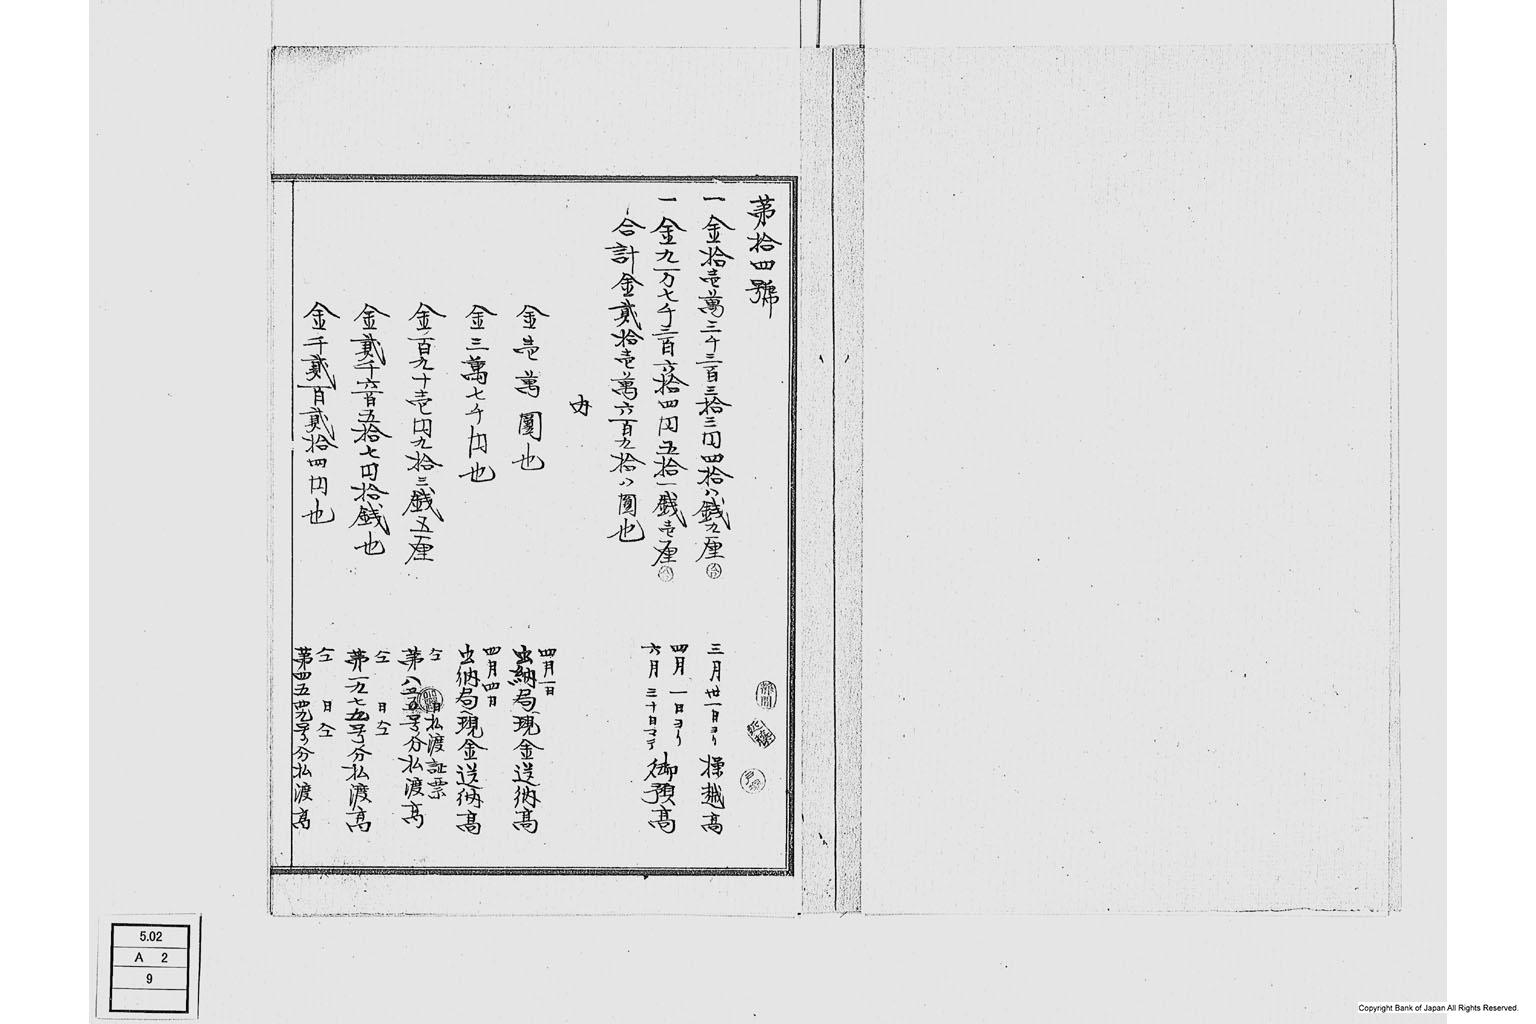 第拾四號
一金拾壱萬三千三百三拾三円四拾八銭九厘
三月卅一日ヨリ操越高
一金九万七千三百六拾四円五拾一銭壱厘
四月一日ヨリ
六月三十日マテ御預高
合計金貳拾壱萬六百九拾八圓也
内
金壱萬圓也
四月一日
出納局現金送納高
金三萬七千円也
四月四日
出納局現金送納高
金百九十壱円九拾三銭五厘
仝日払渡証票
第八五五号分払渡高
金貳千六百五拾七円拾銭也
仝日仝
第一九七五号分払渡高
金千貳百貳拾四円也
仝日仝
第四五四九号分払渡高
5.02
A 2
9
Copyright Bank of Japan All Rights Reserved.